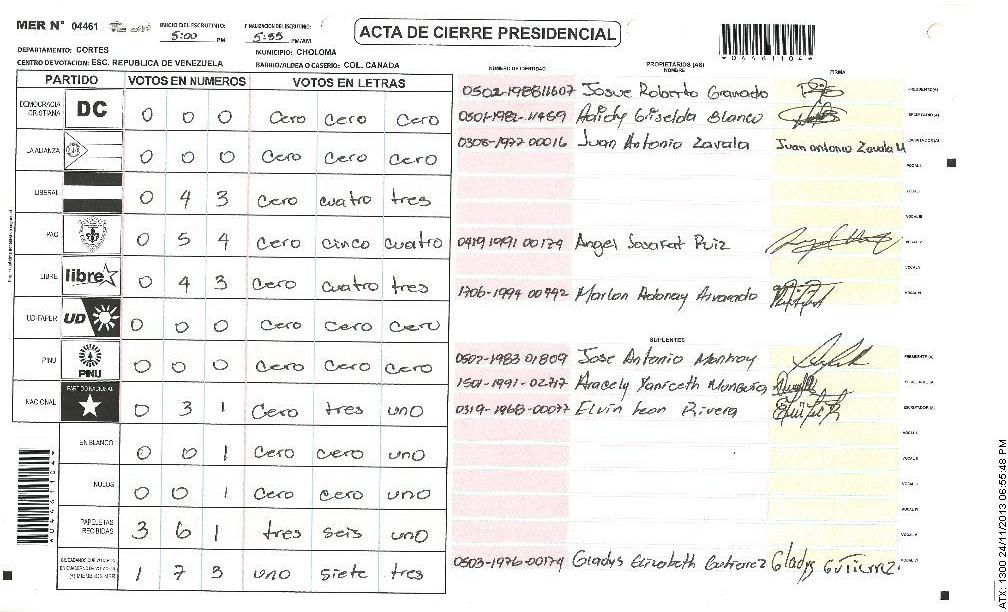 MER N° 04461
INICIO DEL ESCRUTINIO: 5:00 PM
FINALIZACION DEL ESCRUTINIO: 5:55 PM/AM
ACTA DE CIERRE PRESIDENCIAL
*04461104*
DEPARTAMENTO: CORTES
MUNICIPIO: CHOLOMA
CENTRO DE VOTACION: ESC. REPUBLICA DE VENEZUELA
BARRIO/ALDEA O CASERIO: COL. CANADA
PARTIDO VOTOS EN NUMEROS VOTOS EN LETRAS
DEMOCRACIA CRISTIANA DC 0 0 0 Cero Cero Cero
LA ALIANZA 0 0 0 Cero Cero Cero
LIBERAL 0 4 3 Cero cuatro tres
PAC 0 5 4 Cero cinco cuatro
LIBRE libre 0 4 3 Cero cuatro tres
UD-FAPER UD 0 0 0 Cero Cero Cero
PINU PINU 0 0 0 Cero Cero Cero
NACIONAL PARTIDO NACIONAL 0 3 1 Cero tres uno
EN BLANCO 0 0 1 Cero cero uno
NULOS 0 0 1 Cero cero uno
PAPELETAS RECIBIDAS 3 6 1 tres seis uno
1 7 3 uno siete tres
NUMERO DE IDENTIDAD PROPIETARIOS (AS) NOMBRE FIRMA
0502-198811607 Josue Roberto Granado PRESIDENTE(A)
0501-1982-11459 Haidy Griselda Blanco SECRETARIO(A)
0308-1977-00016 Juan Antonio Zavala Juan antonio Zavala M ESCRUTADOR(A)
VOCAL I
VOCAL II
VOCAL III
0419 1991 00174 Angel Ruiz VOCAL IV
VOCAL V
1706-1994 00792 Marlon Adonay Alvarado VOCAL VI
SUPLENTES
0502-1983 01809 Jose Antonio Monroy PRESIDENTE (A)
1501-1991-02717 Aracely Yaniceth
0319-1968-00077 Elvin Leon Rivera ESCRUTADOR(A)
VOCAL I
VOCAL II
VOCAL III
VOCAL IV
VOCAL V
0503-1976-00174 Gladys Elizabeth Gutierrez Gladys Gutierrez VOCAL VI
*04461104*
ATX: 1300 24/11/2013 06:55:48 PM